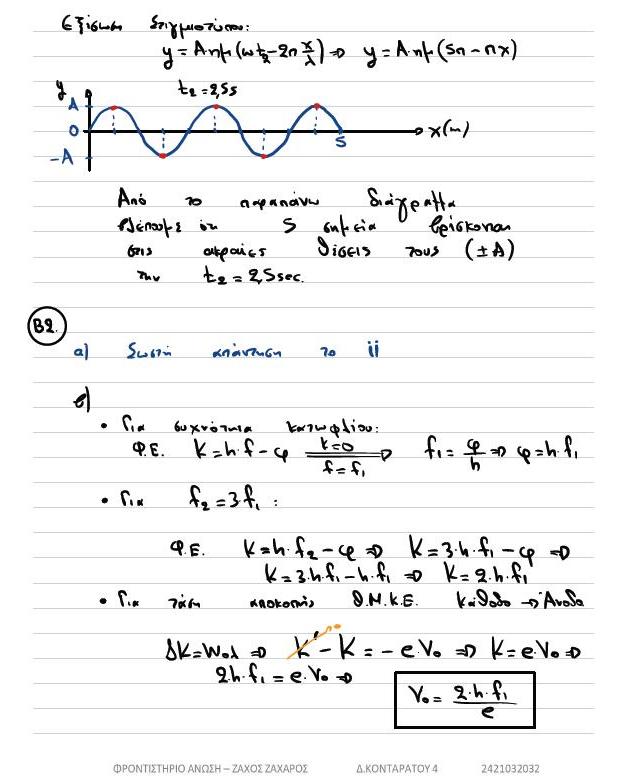 Εξίσωση Στιγμιοτύπου:
y = A·ημ(ωt₂ - 2π x/λ) ⇒ y = A·ημ(5π - πx)
y
t₂ = 2,5s
A
0
x(m)
5
-A
Από το παραπάνω διάγραμμα
βλέπουμε ότι 5 σημεία βρίσκονται
στις ακραίες θέσεις τους (±A)
την t₂ = 2,5sec.
B2.
α) Σωστή απάντηση το ii
β)
• Για συχνότητα κατωφλίου:
Φ.Ε. K = h·f - φ =(K=0, f=f₁)⇒ f₁ = φ/h ⇒ φ = h·f₁
• Για f₂ = 3f₁ :
Φ.Ε. K = h·f₂ - φ ⇒ K = 3·h·f₁ - φ ⇒
K = 3·h·f₁ - h·f₁ ⇒ K = 2·h·f₁
• Για τάση αποκοπής Θ.Μ.Κ.Ε. Κάθοδο → Άνοδο
ΔK = Wολ ⇒ K' - K = -eV₀ ⇒ K = eV₀ ⇒
2h·f₁ = e·V₀ ⇒
V₀ = 2·h·f₁/e
ΦΡΟΝΤΙΣΤΗΡΙΟ ΑΝΩΣΗ – ΖΑΧΟΣ ΖΑΧΑΡΟΣ Δ.ΚΟΝΤΑΡΑΤΟΥ 4 2421032032